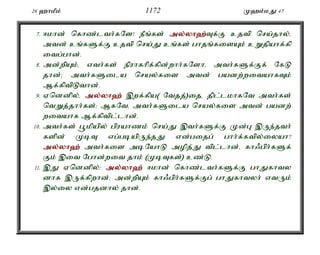 26 ஹாமீம் 1172 முஹம்மது 47
7. ஈமான் கொண்டவர்களே! நீங்கள் அல்லாஹ்வுக்கு உதவி செய்தால்,
அவன் உங்களுக்கு உதவி செய்து உங்கள் பாதங்களையும் உறுதியாக்கி
வைப்பான்.
8. அன்றியும், எவர்கள் நிராகரிக்கின்றார்களோ, அவர்களுக்குக் கேடு
தான்; அவர்களுடைய செயல்களை அவன் பயனற்றவையாகவும்
ஆக்கிவிடுவான்.
9. ஏனெனில், அல்லாஹ் இறக்கிய( வேதத்)தை, திட்டமாகவே அவர்கள்
வெறுத்தார்கள்; ஆகவே, அவர்களுடைய செயல்களை அவன் பயனற்
றவையாக ஆக்கிவிட்டான்.
10. அவர்கள் பூமியில் பிரயாணம் செய்து இவர்களுக்கு முன்பு இருந்தவர்
களின் முடிவு எப்படியிருந்தது என்பதைப் பார்க்கவில்லையா?
அல்லாஹ் அவர்களை அடியோடு அழித்து விட்டான், காஃபிர்களுக்
கும் இவை போன்றவை தாம் (முடிவுகள்) உண்டு.
11. இது ஏனெனில்: அல்லாஹ் ஈமான் கொண்டவர்களுக்கு பாதுகாவல
னாக இருக்கிறான்; அன்றியும் காஃபிர்களுக்குப் பாதுகாவலர் எவரும்
இல்லை என்பதனால் தான்.